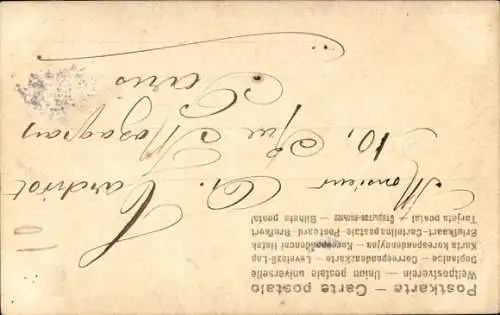 Postkarte – Carte postale
Weltpostverein – Union postale universelle
Correspondenzkarte – Levelező-Lap
Karta korespondencyjna –
Briefkaart – Cartolina postale – Postcard – Brefkort
Tarjeta postal – – Bilhete postal
Monsieur
10, Rue Mazagran
Paris